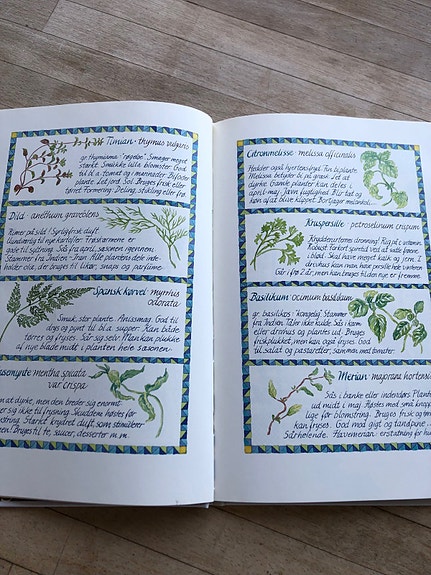 Timian · thymus vulgaris
gr. thymiama "røgelse". Smager meget
stærkt. Smukke lilla blomster. God
til bl.a. te og i madretter. Bifrists
plante. Let jord. Sol. Bruges frisk eller
tørret. Formering: Deling, stikling eller frø.
Dild · anethum graveolens
Kimer på sølv! Syrligfrisk duft.
Uundværlig til nye kartofler. Frøskærmene er
gode til syltning. Sås fra april, sæsonen igennem.
Stammer fra Indien. Alle plantens dele inde-
holder olie, der bruges til likør, snaps og parfume.
Spansk kørvel · myrrhis
odorata
Smuk, stor plante. Anissmag. God til
drys og pynt til bl.a. supper. Kan både
tørres og fryses. Sår sig selv. Man kan plukke
af nye blade midt i planten hele sæsonen.
mentha spicata
var crispa
at dyrke, men den breder sig enormt
er sig ikke til frysning. Skuddene høstes før
omstring. Stærkt krydret duft, som stimulerer
Bruges til te, saucer, desserter m.m.
Citronmelisse · melissa officinalis
Hedder også hjertensfryd. Fin biplante.
Melissa betyder bi på græsk. Let at
dyrke. Gamle planter kan deles i
april-maj. Jævn fugtighed. Blir tad
køn af at blive klippet. Bortjager melankoli...
Kruspersille · petroselinum crispum
Krydderurternes dronning! Rig på C vitamin.
Robust. Tørket spirested ved at lutte bønne.
i blød. Skal have meget kalk og jern. I
drivhus kan man høste persille hele vinteren
Går i frø 2 år, men kan bruges til den nye er fremme.
Basilikum · ocimum basilikum
gr. basilikos: "kongelig". Stammer
fra Indien. Tåler ikke kulde. Sås i karm
eller drivhus og plantes ud. Bruges
friskplukket, men kan også fryses. God
til salat og pastaretter, sammen med tomater.
Merian · majorana hortensis
Sås i bænke eller indendørs. Plantes
ud midt i maj. Høstes med små knopper
lige før blomstring. Bruges frisk og tørret
kan fryses. God mod gigt og tandpine...
Sårhelende. Havemerian: erstatning for hum